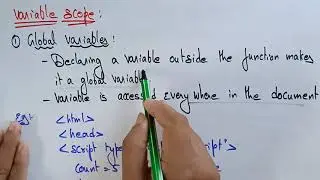 Variable scope:
① Global variables:
- Declaring a variable outside the function makes
it a global variable
- Variable is accessed everywhere in the document
Eg:-
<html>
<head>
<script type
count = 5